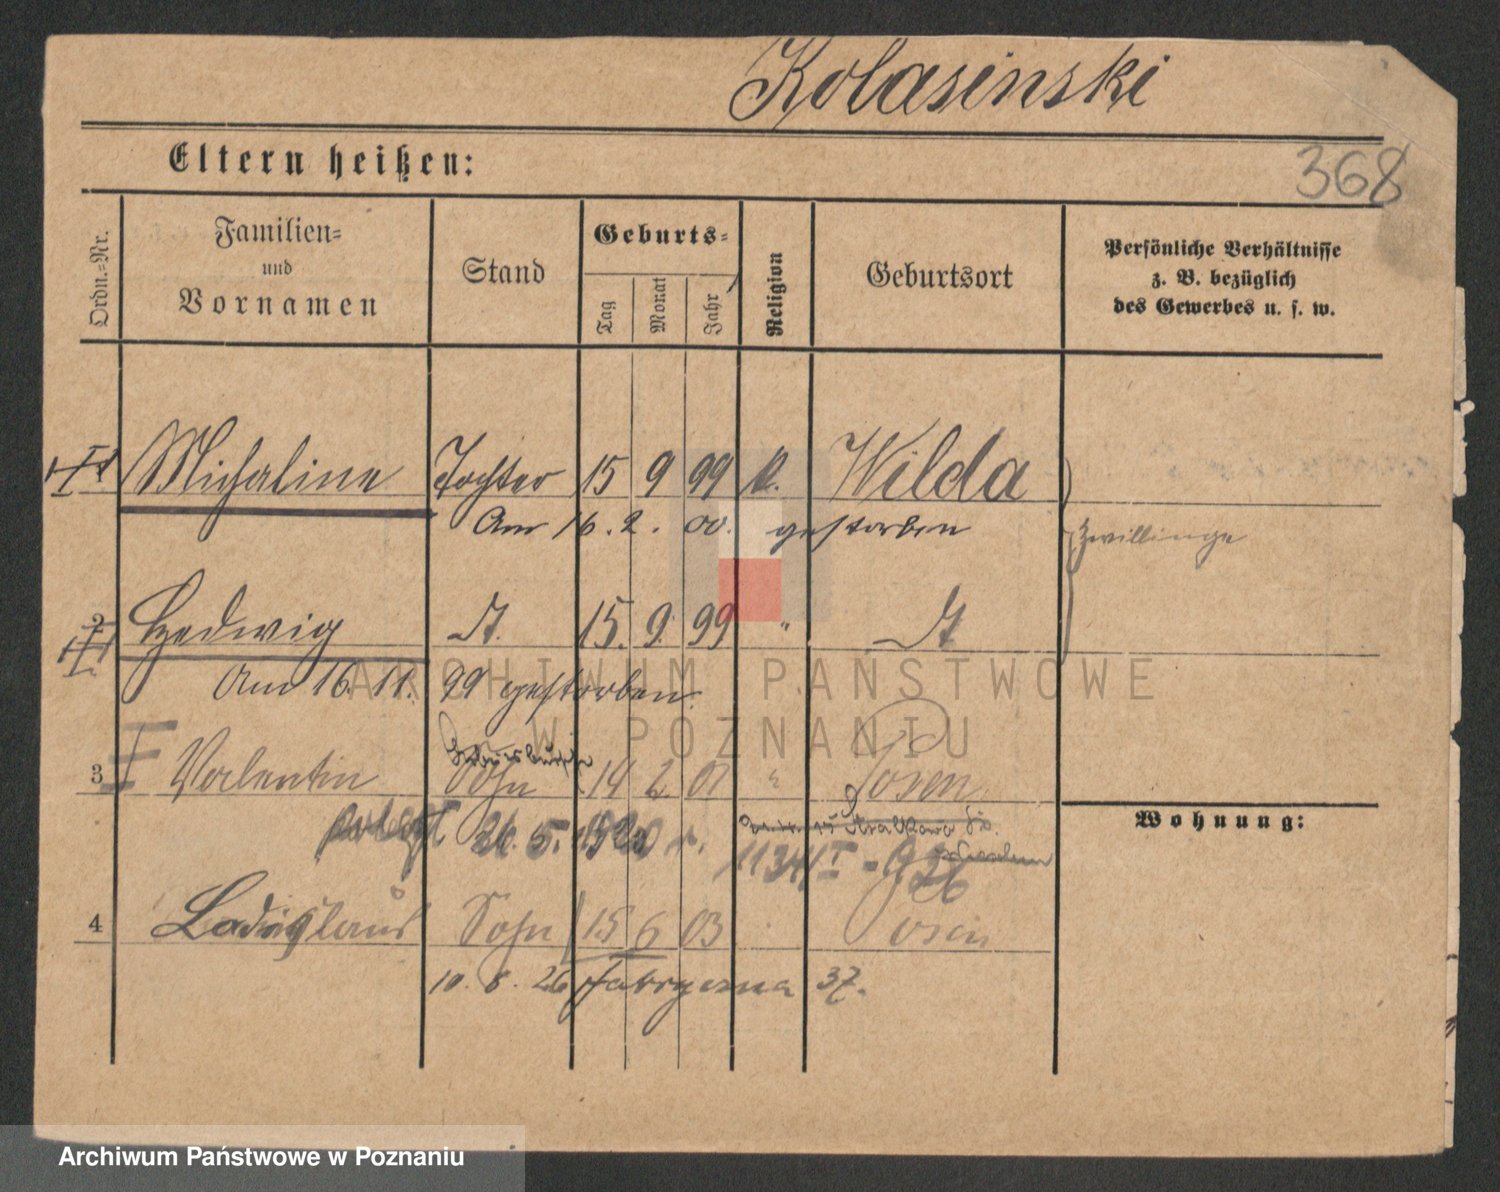 Kolasinski
Eltern heißen:
368
Ordn.=Nr.
Familien=
und
Vornamen
Stand
Geburts=
Tag
Monat
Jahr
Religion
Geburtsort
Persönliche Verhältnisse
z. B. bezüglich
des Gewerbes u. s. w.
1 Michaline Tochter 15 9 99 k. Wilda
Am 16. 2. 00. gestorben
Zwillinge
2 Hedwig dt. 15. 9. 99 " dt
Am 16. 11. 99 gestorben.
ARCHIWUM PAŃSTWOWE
W POZNANIU
3 Valentin Sohn 14 2 01 " Posen
26. 5. 1920 r.
11341 I - 926
Wohnung:
4 Ladislaus Sohn 15 6 03 Posen
10. 8. 26 Fabryczna 37.
Archiwum Państwowe w Poznaniu